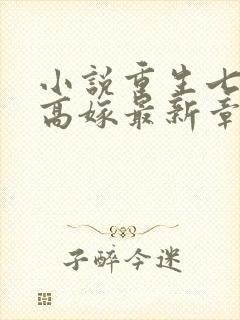 小説重生七
高嫁最新章
子醉今迷